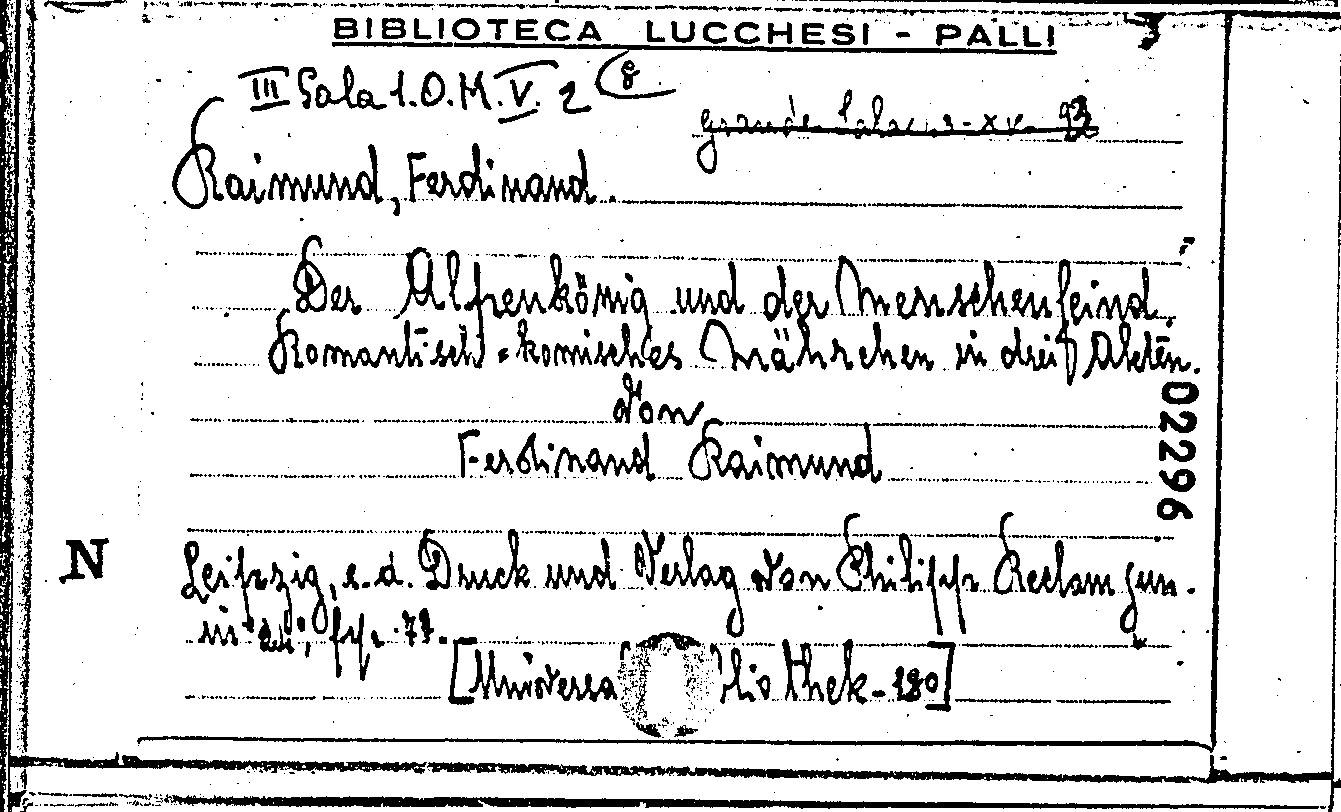 BIBLIOTECA LUCCHESI - PALLI
III Sala 1.O.M.V. 2 (8
Raimund, Ferdinand.
Der Alpenkönig und der Menschenfeind.
Romantisch-komisches Mährchen in drei Akten.
Von
Ferdinand Raimund
02296
N
Leipzig, s.d. Druck und Verlag von Philipp Reclam jun.
in pp. 77.
[Universa bliothek-180]